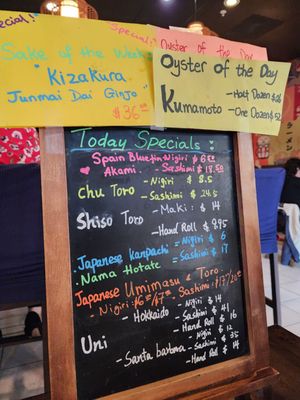 Special!
Special!
Oyster of the Day
Sake of the Week
"Kizakura"
Junmai Dai Ginjo
$36
Oyster of the Day
Kumamoto
- Half Dozen
- One Dozen $52
Today Specials
Spain Bluefin - Nigiri $6.5
Akami. - Sashimi $18.50
Chu Toro - Nigiri $8.5
- Sashimi $24.5
Shiso Toro - Maki: $14
- Hand Roll $9.95
Japanese Kanpachi = Nigiri $6
Nama Hotate = Sashimi $17
Japanese Umimasu & Toro.
- Nigiri $6/$7 - Sashimi
Uni
Hokkaido - Nigiri $14
- Sashimi $41
- Hand Roll $16
- Santa barbara - Nigiri $12
- Sashimi $35
- Hand Roll $14